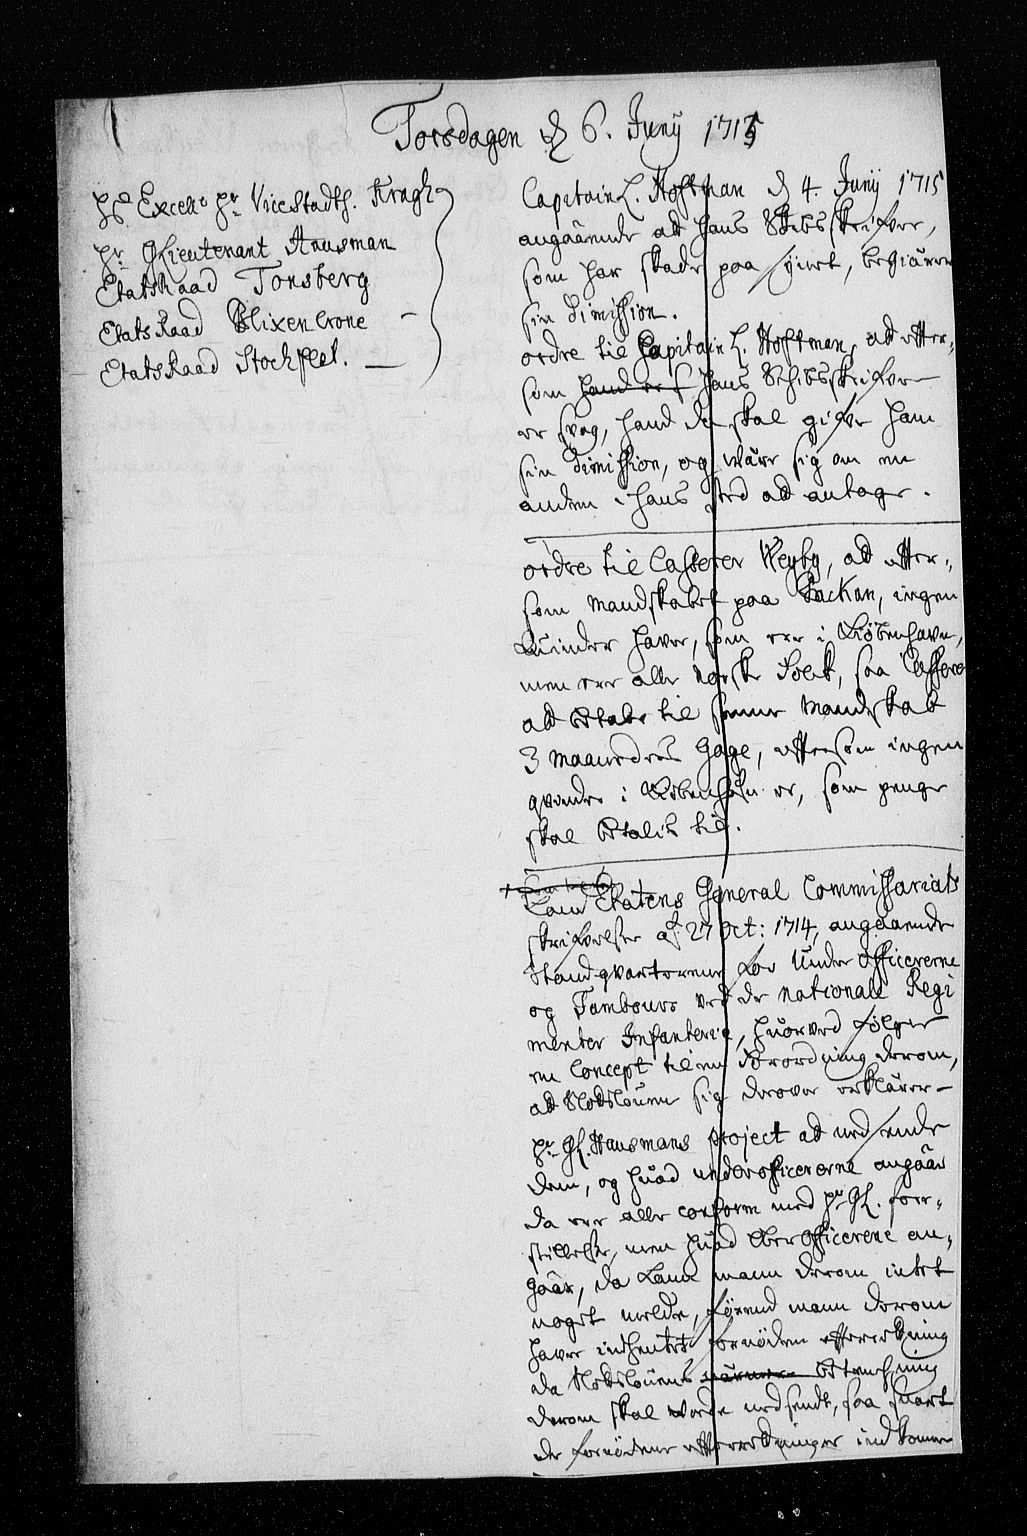 Torsdagen d. 6. Junij 1715
Hs. Excell. Hr. ViceStadth. Kragh
Hr. GLieutenant Hausman
EtatsRaad Tonsberg
EtatsRaad Blixencrone
EtatsRaad Stockflet.
Capitain L. Hoffman d. 4. Junij 1715
angaaende at hans Skibsskrifver,
som har skade paa hiert, begiærer
sin dimission.
ordre til Capitain L. Hoffman, at efter-
som hans Schibsskrifver
er svag, hand da skal gifve ham
sin dimission, og være sig om en
anden i hans sted at antage.
ordre til Casserer Weyby, at efter-
som Mandskabet paa Packan, ingen
Quinder haver, som ere i Kiøbenhavn,
men ere alle norske Folck, saa
at betale til samme Mandskab
3 maaneders Gage, eftersom ingen
qvinder i Kiøbenhafn er, som penge
skal betalis til.
Land Etatens General Commissariats
skrifvelse af 27 Oct: 1714, angaaende
Standqvarterene for Under officererne
og Tambours ved de nationale Regi
menter Infanterie, hvorved følger
en Concept til en Forordning derom,
at Slotsloven sig derover erklærer
Hr. GL. Hausmans project at nedsende
dem, og hvad underofficererne angaar
da ere alle conform med Hr. GL. fore-
stillelse, men hvad Ober Officerene an-
gaar, da kand mand derom intet
noget melde, førend mand derom
haver indhentet fornøden efterretning
da Slotslovens betenchning
derom skal vorde nedsendt, saa snart
de fornødene efterretninger indkomme